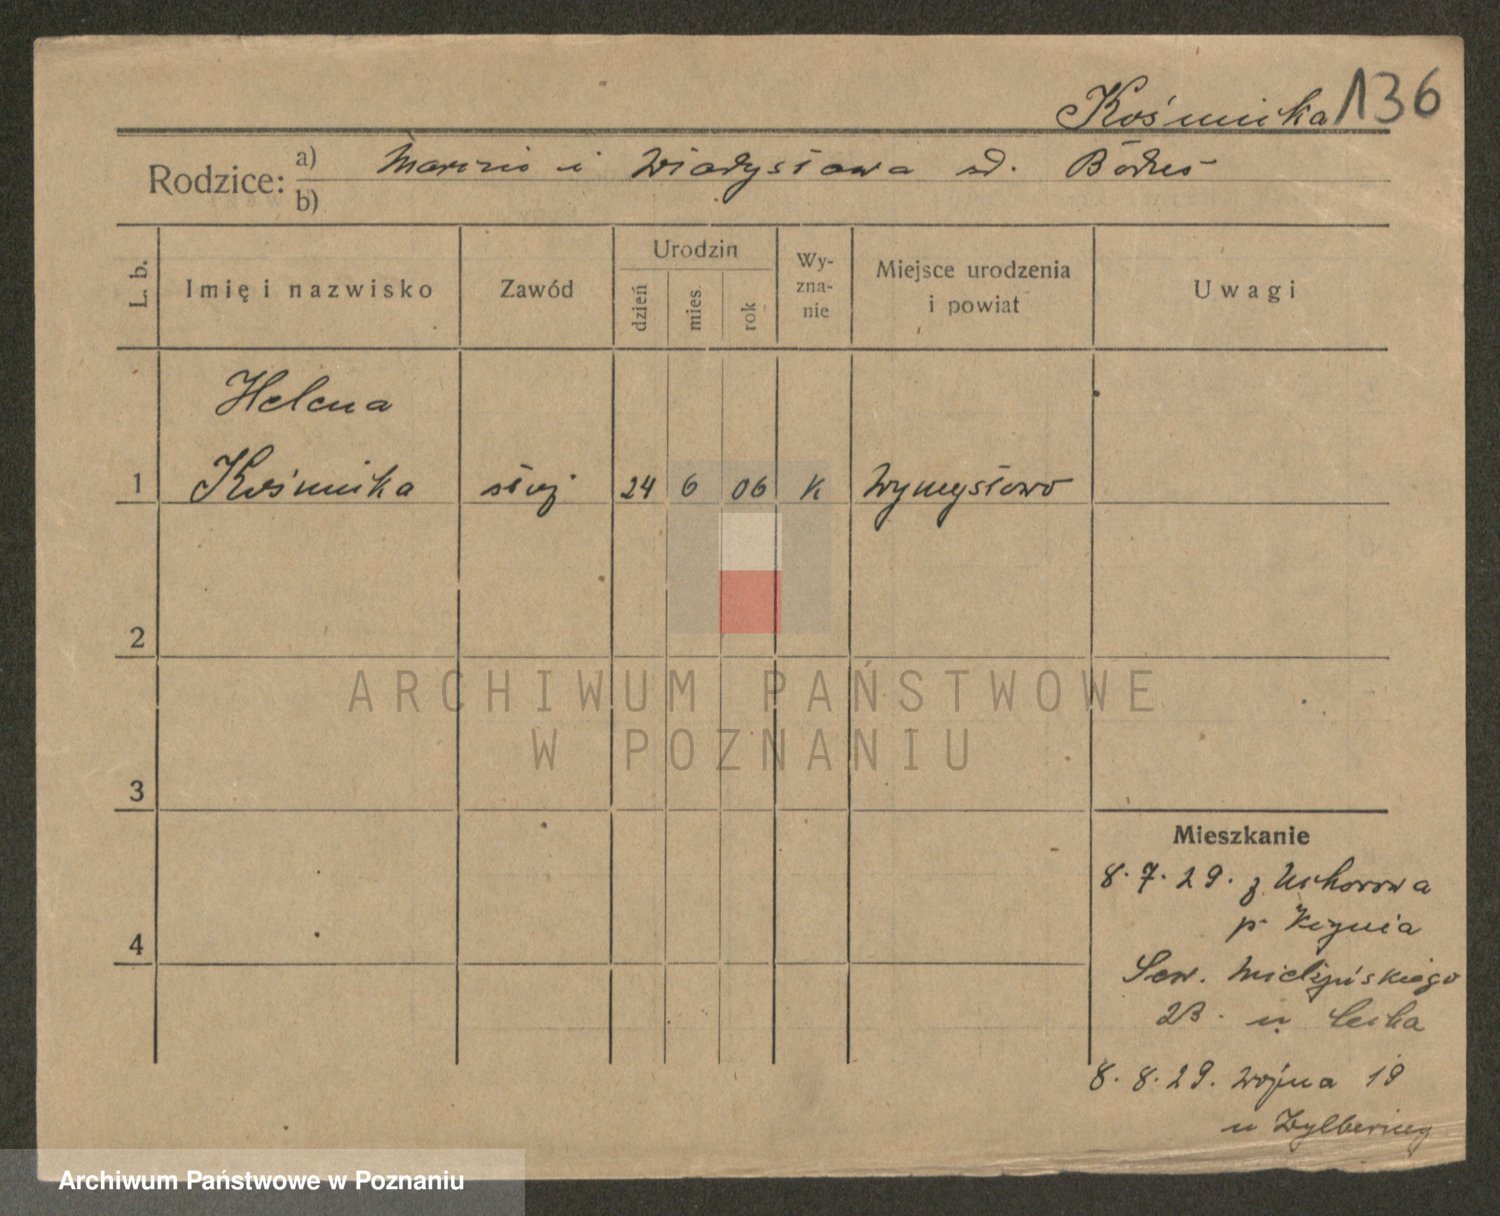 Kośmicka 136
Rodzice: a) Marcin i Władysława
b)
L. b. Imię i nazwisko Zawód Urodzin dzień mies. rok Wy-zna-nie Miejsce urodzenia i powiat Uwagi
Helena
1 Kośmicka służ 24 6 06 K Wymysłowo
2
ARCHIWUM PAŃSTWOWE
W POZNANIU
3
Mieszkanie
8.7.29. z Uchorowa
p.
4
Sew. Mielżyńskiego
23. u
8.8.29. 19
u
Archiwum Państwowe w Poznaniu